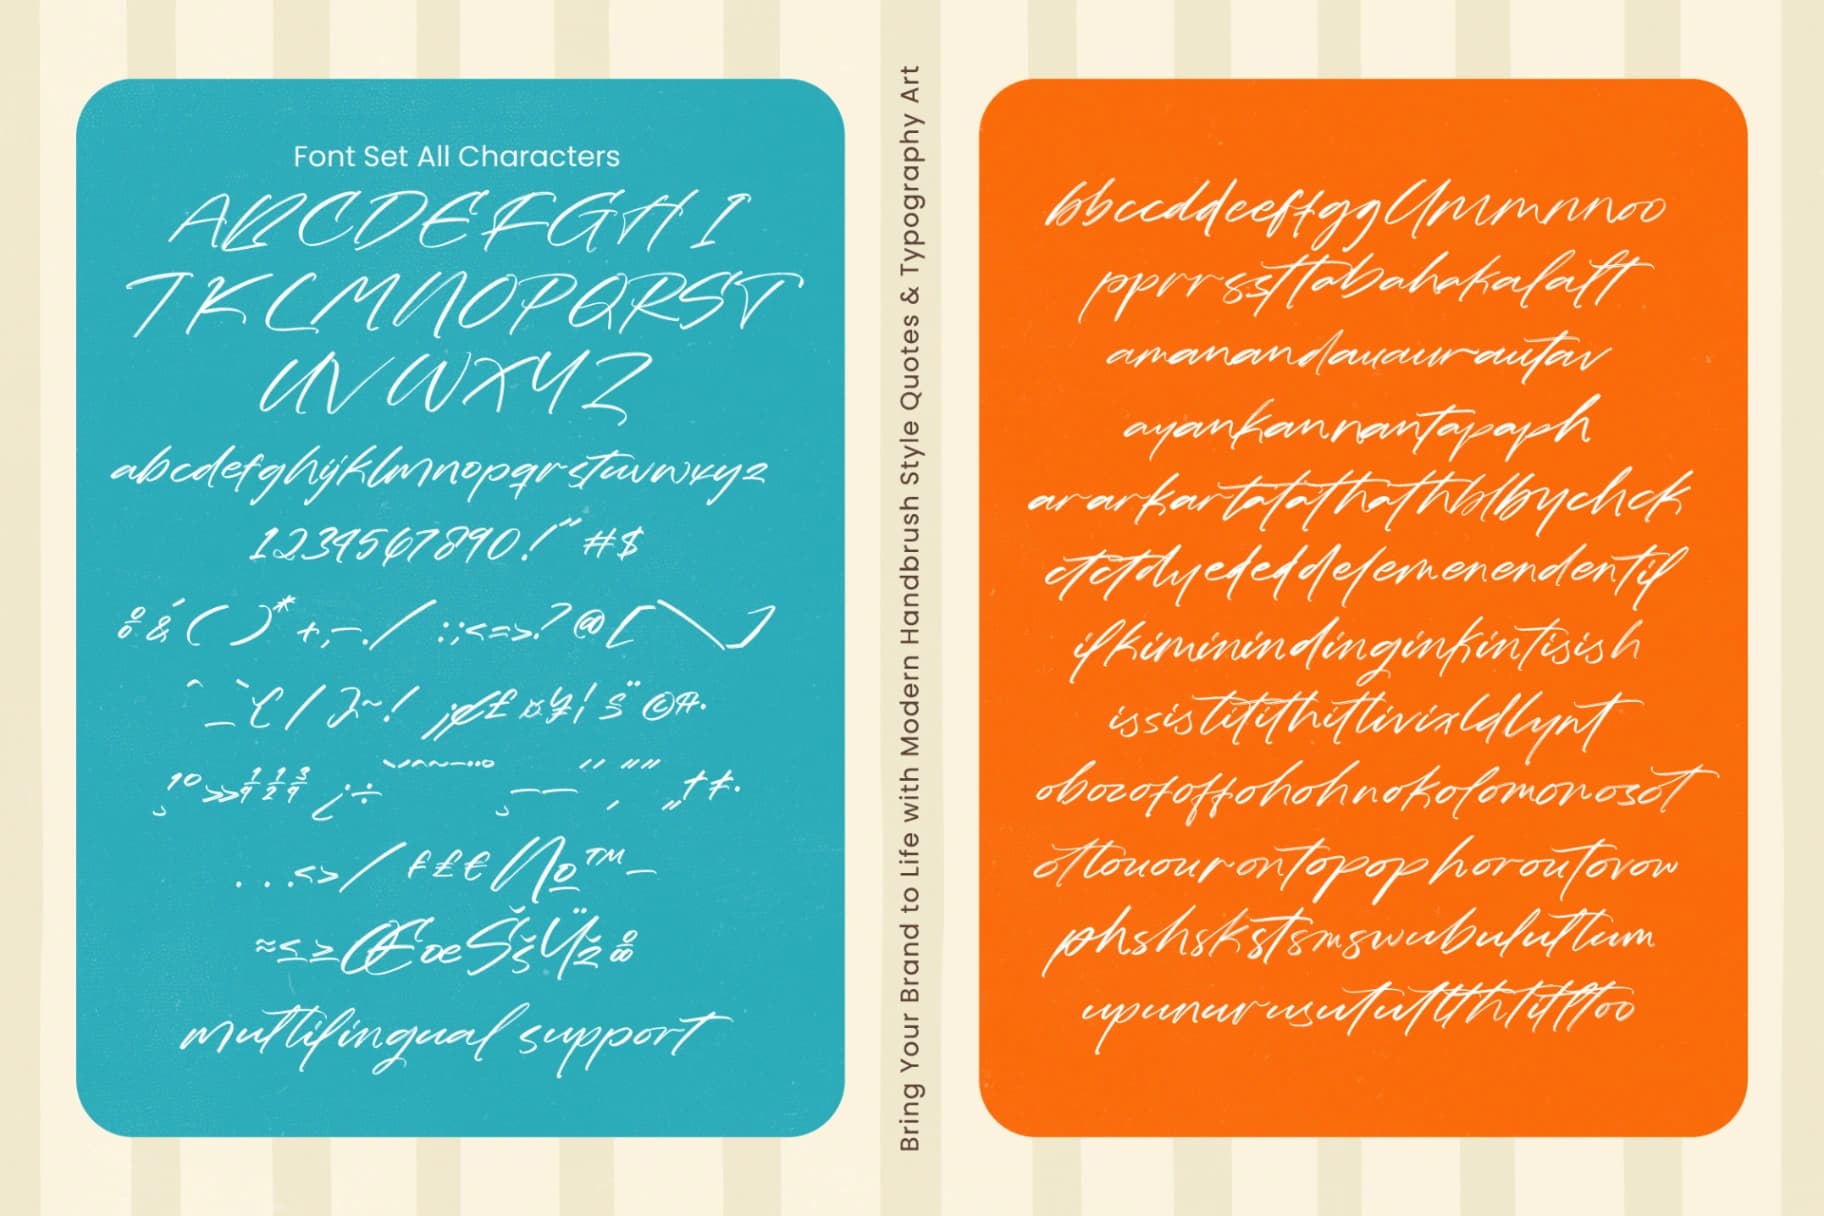 Font Set All Characters
ABCDEFGHI
JKLMNOPQRST
UVWXYZ
abcdefghijklmnopqrstuvwxyz
1234567890!"#$
%&'()*+,-./:;<=>?@[\]
^_`{|}~¡¢£¤¥¦§¨©ª·
¸¹º»¼½¾¿÷
...‹›⁄₣₤€№™−
≈≤≥ŒœŠšŸž‰
multilingual support
Bring Your Brand to Life with Modern Handbrush Style Quotes & Typography Art
bbccddeeffggllmmnnoo
pprrssttabahakalalt
amanandauauurautav
ayankannantapaph
ararkartatathathblbychck
ctctdyededdelemenendentif
ifkiminindinginkintisish
issistitithitlivixldlynt
obocofoffohohnokolomonosot
ottououronтopophoroutovow
phshskstsmswubulultum
upunurusututtthtitltoo